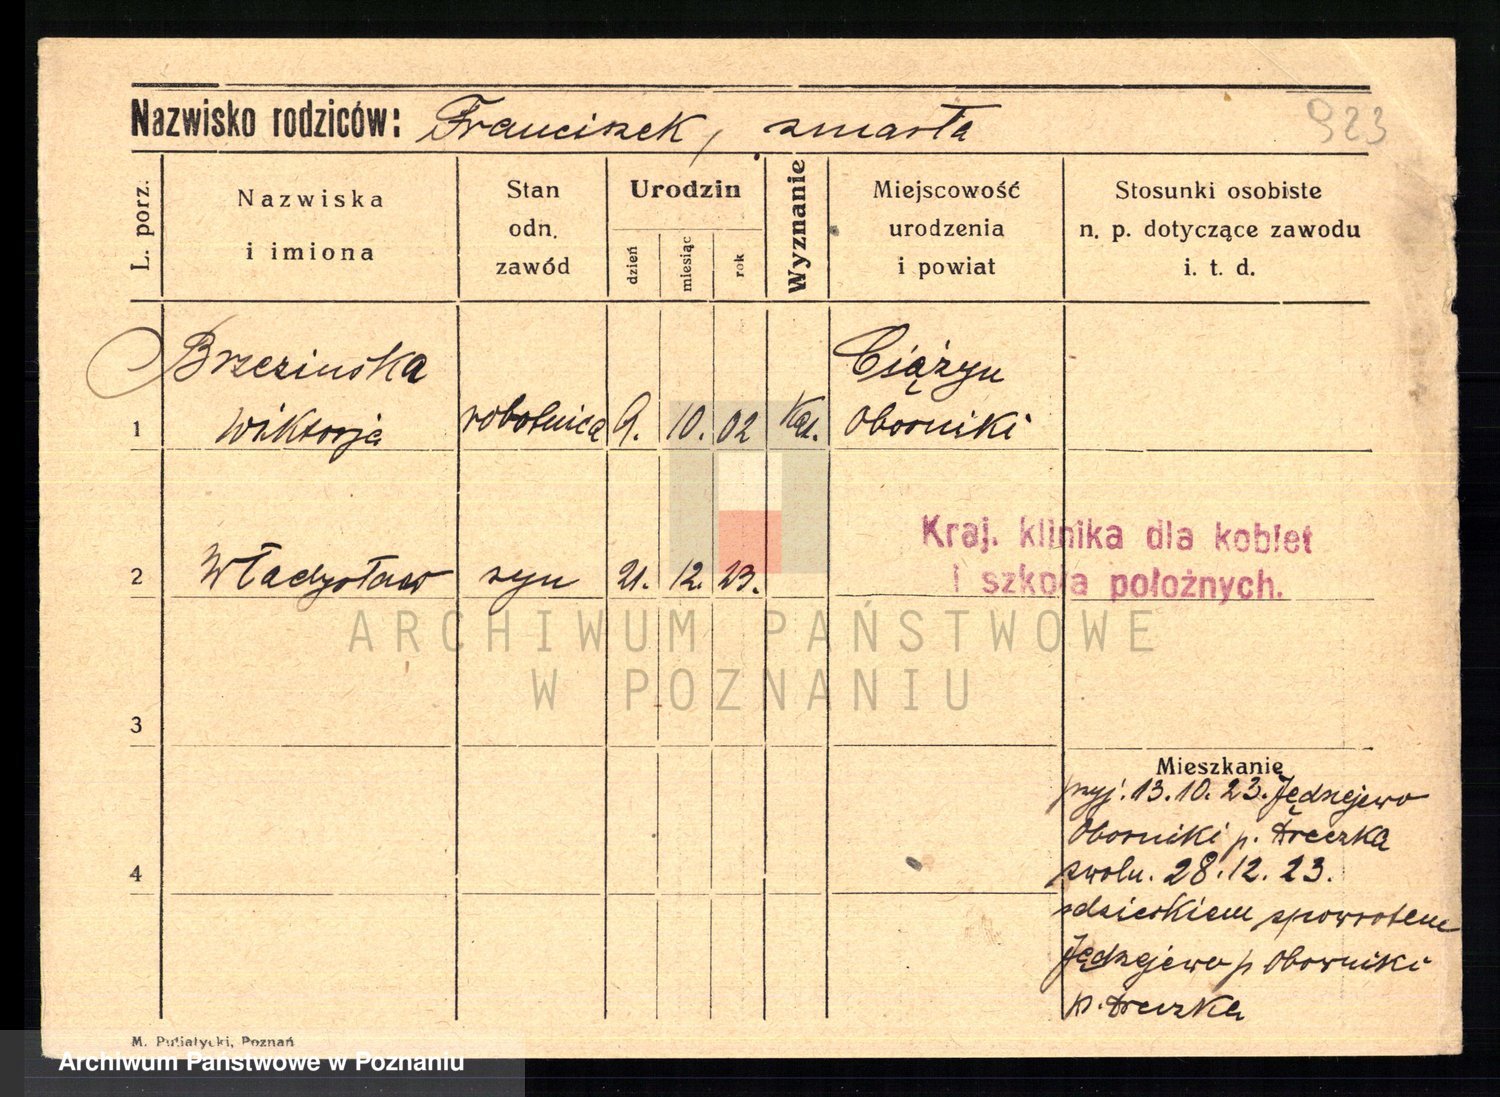 923
Nazwisko rodziców: Franciszek, zmarła
L. porz.
Nazwiska
i imiona
Stan
odn.
zawód
Urodzin
dzień
miesiąc
rok
Wyznanie
Miejscowość
urodzenia
i powiat
Stosunki osobiste
n. p. dotyczące zawodu
i. t. d.
Brzezinska Ciążyn
1 Wiktorja robotnica 9. 10. 02 Kat. Oborniki
Kraj. klinika dla kobiet
i szkoła położnych.
2 Władysław syn 21. 12. 23.
ARCHIWUM PAŃSTWOWE
W POZNANIU
3
Mieszkanie
przyj. 13.10.23. Jędrzejewo
Oborniki p.
4
zwoln. 28.12.23.
zdzieckiem spowrotem
Jędrzejewo p Oborniki
p.
M. Putiatycki, Poznań
Archiwum Państwowe w Poznaniu